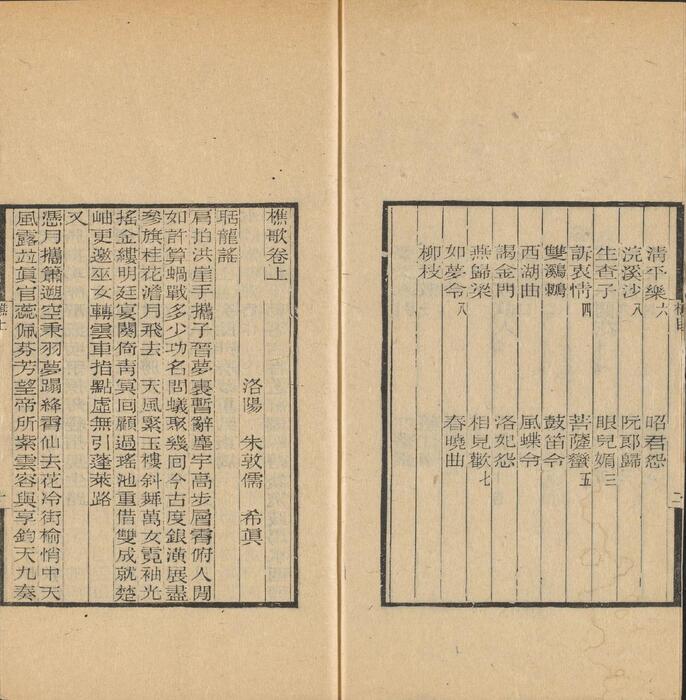 清平樂六 昭君怨
浣溪沙八 阮郎歸
生查子 眼兒媚三
訴衷情四 菩薩蠻五
雙鸂鶒 鼓笛令
西湖曲 風蝶令
謁金門 洛妃怨
燕歸梁 相見歡七
如夢令八 春曉曲
柳枝
樵歌卷上
洛陽 朱敦儒 希眞
聒龍謠
肩拍洪崖手攜子晉夢裏暫辭塵宇高步層霄俯人閒
如許算蝸戰多少功名問蟻聚幾囘今古度銀潢展盡
參旗桂花澹月飛去 天風緊玉樓斜舞萬女霓袖光
搖金縷明廷宴闋倚靑冥囘顧過瑤池重借雙成就楚
岫更邀巫女轉雲車指點虛無引蓬萊路
又
憑月攜簫遡空秉羽夢蹋絳霄仙去花冷街楡悄中天
風露竝眞官蕊佩芬芳望帝所紫雲容與享鈞天九奏